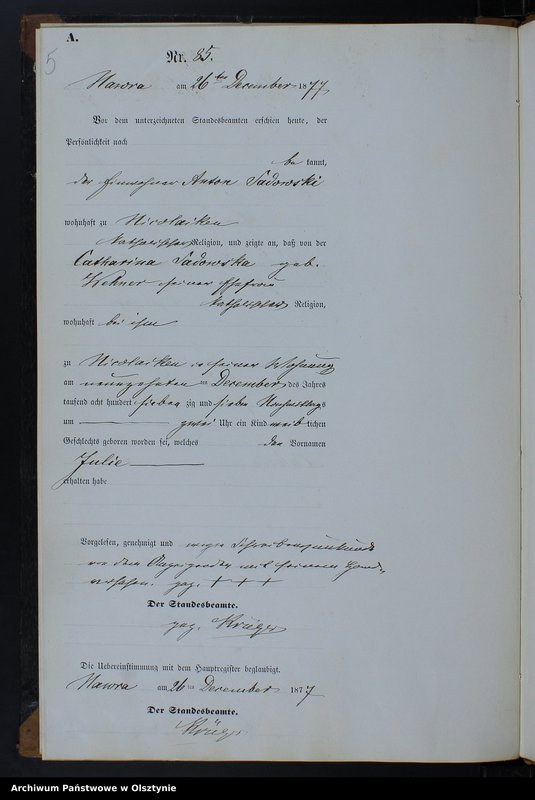 A.
5
Nr. 85.
Nawra am 26ten December 1877.
Vor dem unterzeichneten Standesbeamten erschien heute, der
Persönlichkeit nach
be kannt,
der Einwohner Anton Sadowski
wohnhaft zu Nicolaiken
katholischer Religion, und zeigte an, daß von der
Catharina Sadowska geb.
seiner Ehefrau
katholischer Religion,
wohnhaft bei ihm
zu Nicolaiken in seiner Wohnung
am neunzehnten ten December des Jahres
tausend acht hundert sieben zig und sieben Nachmittags
um zwei Uhr ein Kind weib lichen
Geschlechts geboren worden sei, welches den Vornamen
Julie
erhalten habe
Vorgelesen, genehmigt und wegen Schreibensunkunde
von dem Anzeigenden mit seinem Hand-
versehen. gez. + + +
Der Standesbeamte.
gez. Krüger
Die Uebereinstimmung mit dem Hauptregister beglaubigt.
Nawra am 26 ten December 1877
Der Standesbeamte.
Krüger
Archiwum Państwowe w Olsztynie